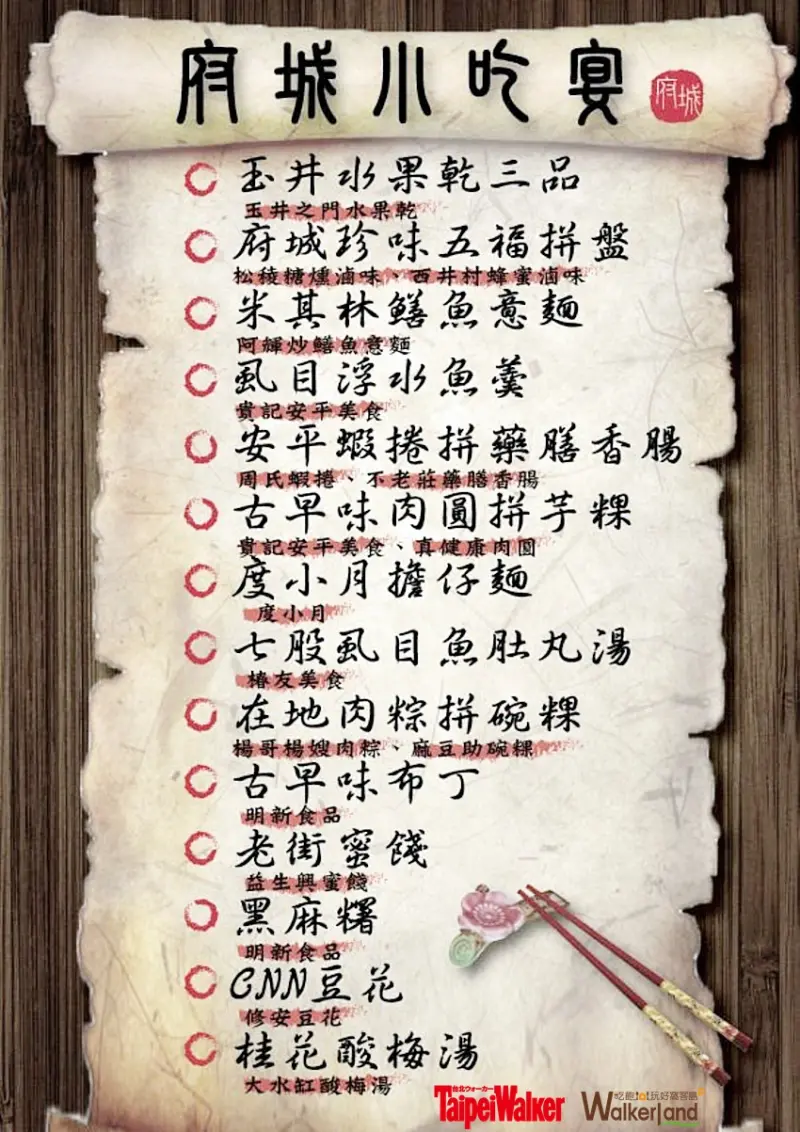 府城小吃宴
府城
玉井水果乾三品
玉井之門水果乾
府城珍味五福拼盤
松稜糖燻滷味、西井村蜂蜜滷味
米其林鱔魚意麵
阿輝炒鱔魚意麵
虱目浮水魚羹
貴記安平美食
安平蝦捲拼藥膳香腸
周氏蝦捲、不老莊藥膳香腸
古早味肉圓拼芋粿
貴記安平美食、真健康肉圓
度小月擔仔麵
度小月
七股虱目魚肚丸湯
椿友美食
在地肉粽拼碗粿
楊哥楊嫂肉粽、麻豆助碗粿
古早味布丁
明新食品
老街蜜餞
益生興蜜餞
黑麻糬
明新食品
CNN豆花
修安豆花
桂花酸梅湯
大水缸酸梅湯
台北ウォーカー
TaipeiWalker
WalkerLand